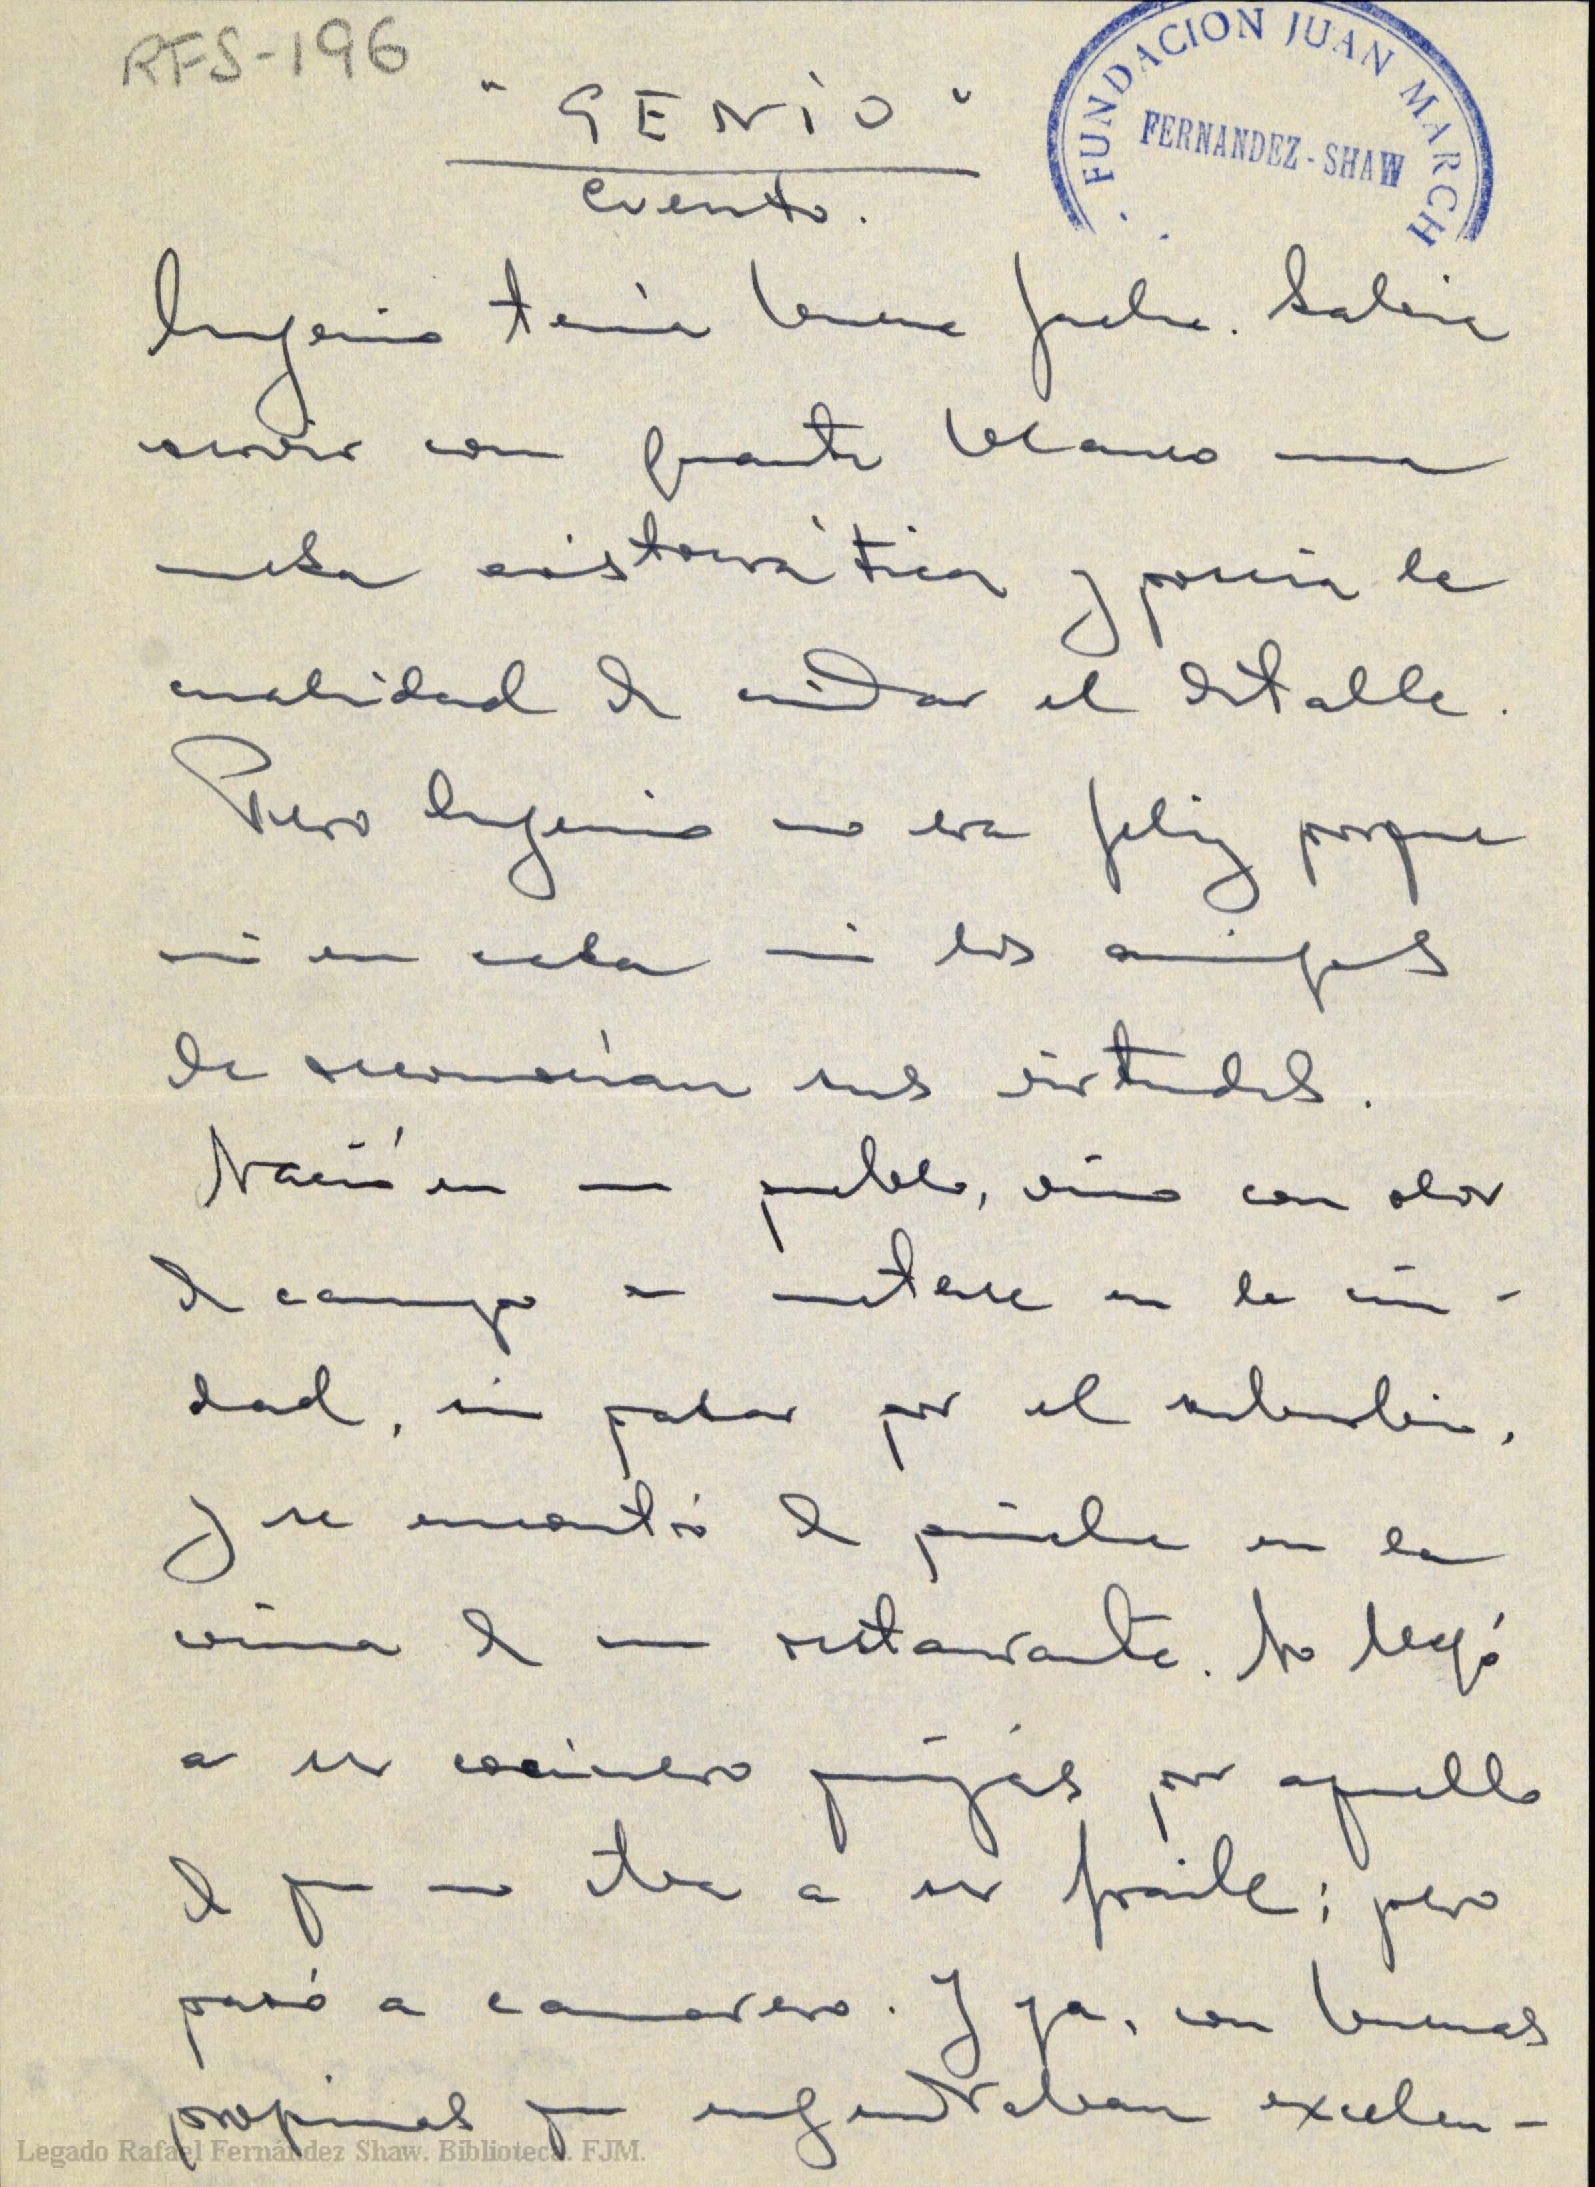 RFS-196
FUNDACION JUAN MARCH
FERNANDEZ-SHAW
"GENIO"
cuento.
Eugenio tenía buena facha. Sabía
servir con guante blanco una
mesa aristocrática y poseía la
cualidad de cuidar el detalle.
Pero Eugenio no era feliz porque
ni en casa ni los amigos
le reconocían sus virtudes.
Nació en un pueblo, vino con olor
de campo a meterse en la ciu-
dad, sin pasar por el suburbio,
y se encontró de pinche en la
cocina de un restaurante. No llegó
a ser cocinero quizás por aquello
de que no iba a ser fraile; pero
pasó a camarero. Y ya, con buenas
propinas que engendraban excelen-
Legado Rafael Fernández Shaw. Biblioteca. FJM.